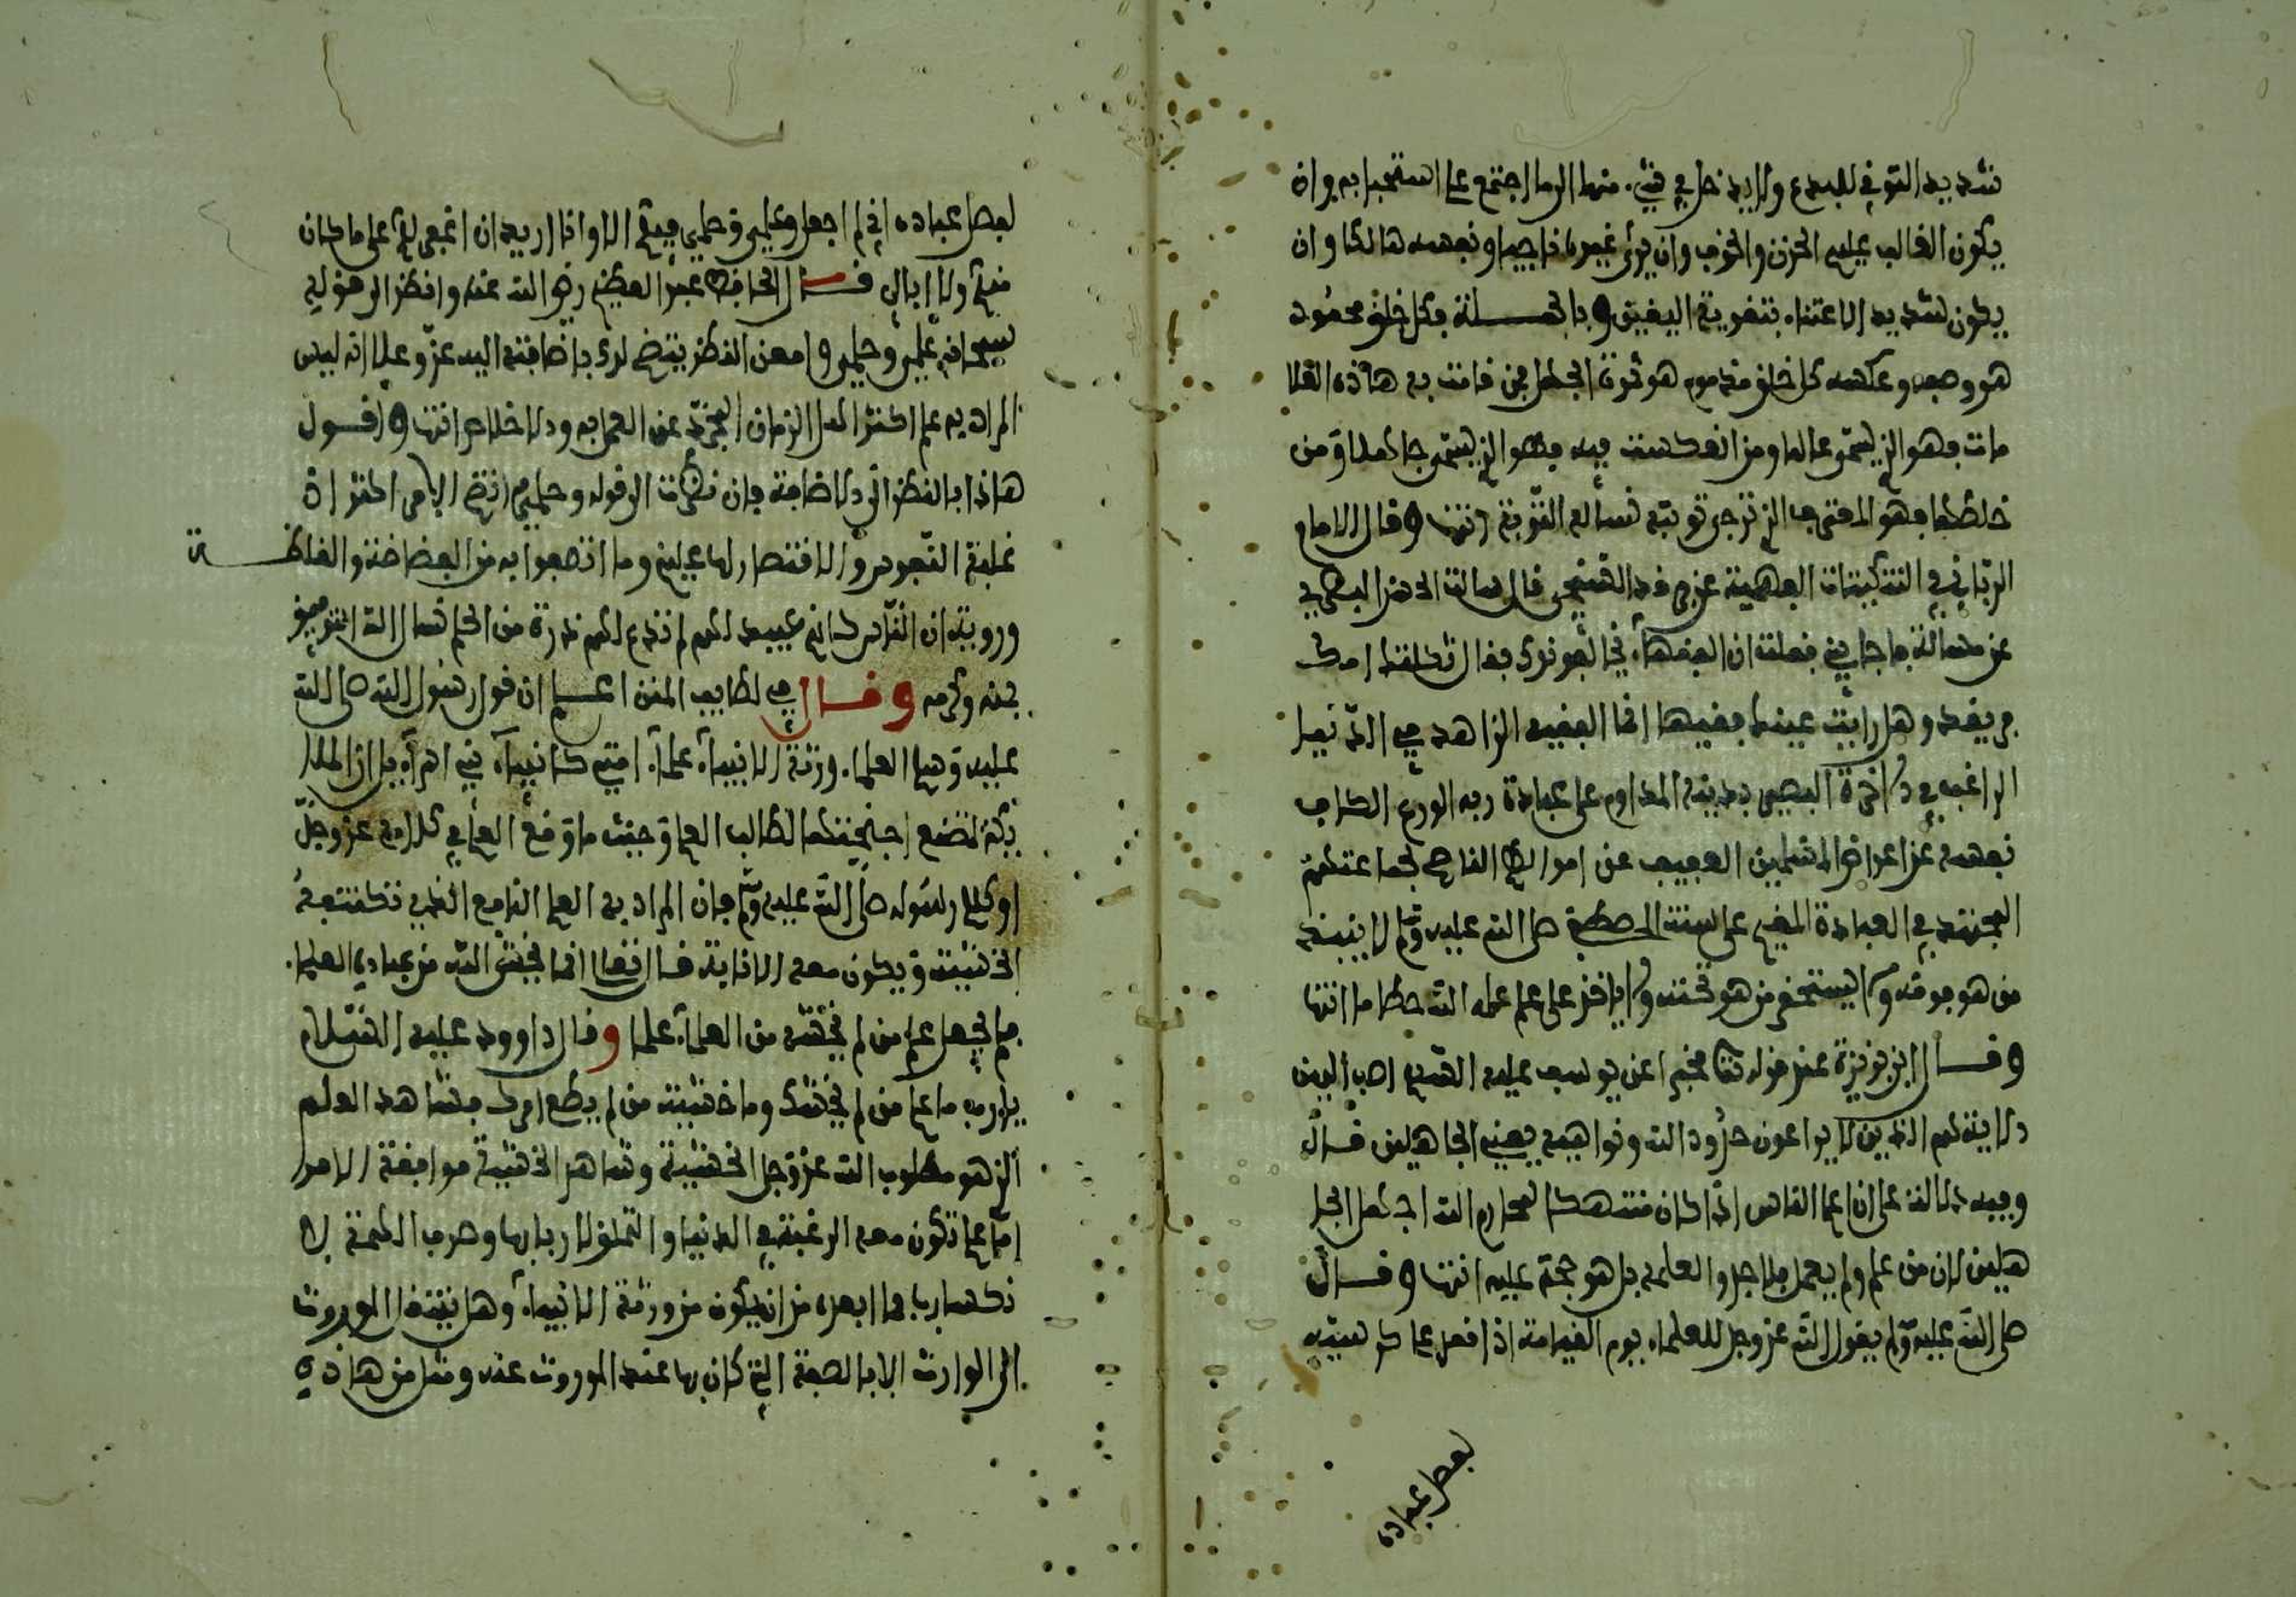 شديد التوقي للبدع ولا يدخل في شيء منها الا ما اجتمع على استحبابه وان
يكون الغالب عليه الحزن والخوف وان يرى غيره ناجيا ونفسه هالكا وان
يكون شديد الاعتناء بتقوية اليقين وبالجملة فكل خلق محمود
هو وصفه وعكسه كل خلق مذموم هو ثمرة الجهل فمن قامت به هاذه العلا
مات فهو الذي يسمى عالما ومن انعكست فيه فهو الذي يسمى جاهلا ومن
خلطها فهو المعترف الذي ترجى توبته نسأله التوبة انتها وقال الامام
عن مسالة فاجابني فقلت ان الفقهاء يخالفونك فقال ثكلتك امك
وهل رأيت بعينك فقيها انما الفقيه الزاهد في الدنيا
الراغب في الاخرة البصير بدينه المداوم على عبادة ربه الورع الكاف
نفسه عن اعراض المسلمين العفيف عن اموالهم الناصح لجماعتهم
المجتهد في العبادة المقيم على سنة المصطفى صلى الله عليه وسلم لا ينبذ
من هو فوقه ولا يستخف من هو تحته ولا ياخذ على علم علمه الله حطاما انتها
وقال ابن بزيزة عند قوله تعا مخبرا عن يوسف عليه السلم اصب اليهن
الاية هم الذين لا يراعون حدود الله ونواهيه يعني الجاهلين قال
وفيه دلالة على ان اعلم الناس اذا كان منتهكا لمحارم الله اجهل الجا
هلين لان من علم ولم يعمل فلا جدوا لعلمه بل هو حجة عليه انتها وقال
صلى الله عليه وسلم يقول الله عز وجل للعلماء يوم القيامة اذا قعد على كرسيه
بعصل عباده
لفصل عباده اني لم اجعل علمي وحلمي فيكم الا وانا اريد ان اغفر لكم على ما كان
منكم ولا ابالي قال الحافظ عبد العظيم رضي الله عنه وانظر الى قوله
سبحانه علمي وحلمي وامعن النظر يتضح لك باضافته اليه عز وعلا انه ليس
المراد به علم اكثر اهل الزمان المجرد عن العمل به والاخلاص انتها واقول
هاذا بالنظر الى الاضافة فان نظرت الى قوله وحلمي اتضح الامر اكثر اذ
غلبة النفوس والانتصار لها عليهم وما اتصفوا به من الفضاضة والغلظة
وروية ان الناس كانهم عبيد لهم لم تدع لهم ذرة من الحلم نسال الله التوفيق
بمنه وكرمه وقال في لطايف المنن اعلم ان قول رسول الله صلى الله
عليه وسلم العلماء ورثة الانبياء علماء امتي كانبياء بني اسراءيل ان الملا
يكة لتضع اجنحتها لطالب العلم وحيث ما وقع العلم في كلامه عز وجل
او كلام رسوله صلى الله عليه وسلم فان المراد به العلم النافع الذي تكتنفه
الخشية ويكون معه الانابة قال تعلى انما يخشى الله من عباده العلماء
فلم يجعل علم من لم يخشه من العلماء علما وقال داوود عليه السلام
يا رب ما علم من لم يخشك وما خشية من لم يطع امرك فشاهد العلم
الذي هو مطلوب الله عز وجل الخشية وشاهد الخشية موافقة الامر
اما علم تكون معه الرغبة في الدنيا والتملق لاربابها وصرف الهمة لا
كتسابها فما ابعده من ان يكون من ورثة الانبياء وهل ينتقل الموروث
الى الوارث الا بالصفة التي كان بها عند الموروث عنه ومثل من هاذه